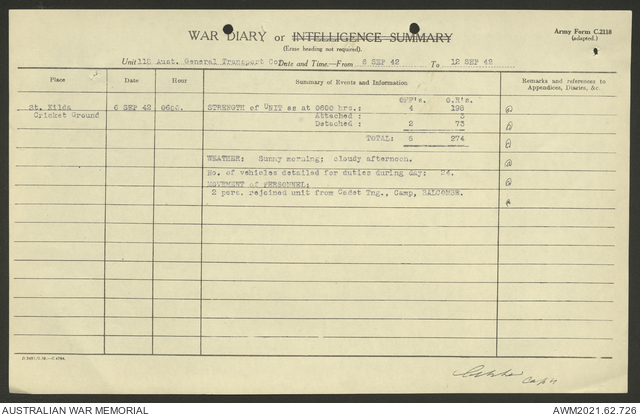 WAR DIARY or INTELLIGENCE SUMMARY
Army Form C.2118
(adapted.)
(Erase heading not required).
Unit 115 Aust. General Transport Coy Date and Time.—From 6 SEP 42 To 12 SEP 42
Place Date Hour Summary of Events and Information Remarks and references to Appendices, Diaries, &c.
OFF's. O.R's.
St. Kilda 6 SEP 42 0600. STRENGTH of UNIT as at 0600 hrs.: 4 198
Cricket Ground Attached : 3
Detached : 2 73
TOTAL: 6 274
WEATHER: Sunny morning; cloudy afternoon.
No. of vehicles detailed for duties during day: 24.
MOVEMENT of PERSONNEL:
2 pers. rejoined unit from Cadet Tng., Camp, BALCOMBE.
Capt
AUSTRALIAN WAR MEMORIAL
AWM2021.62.726